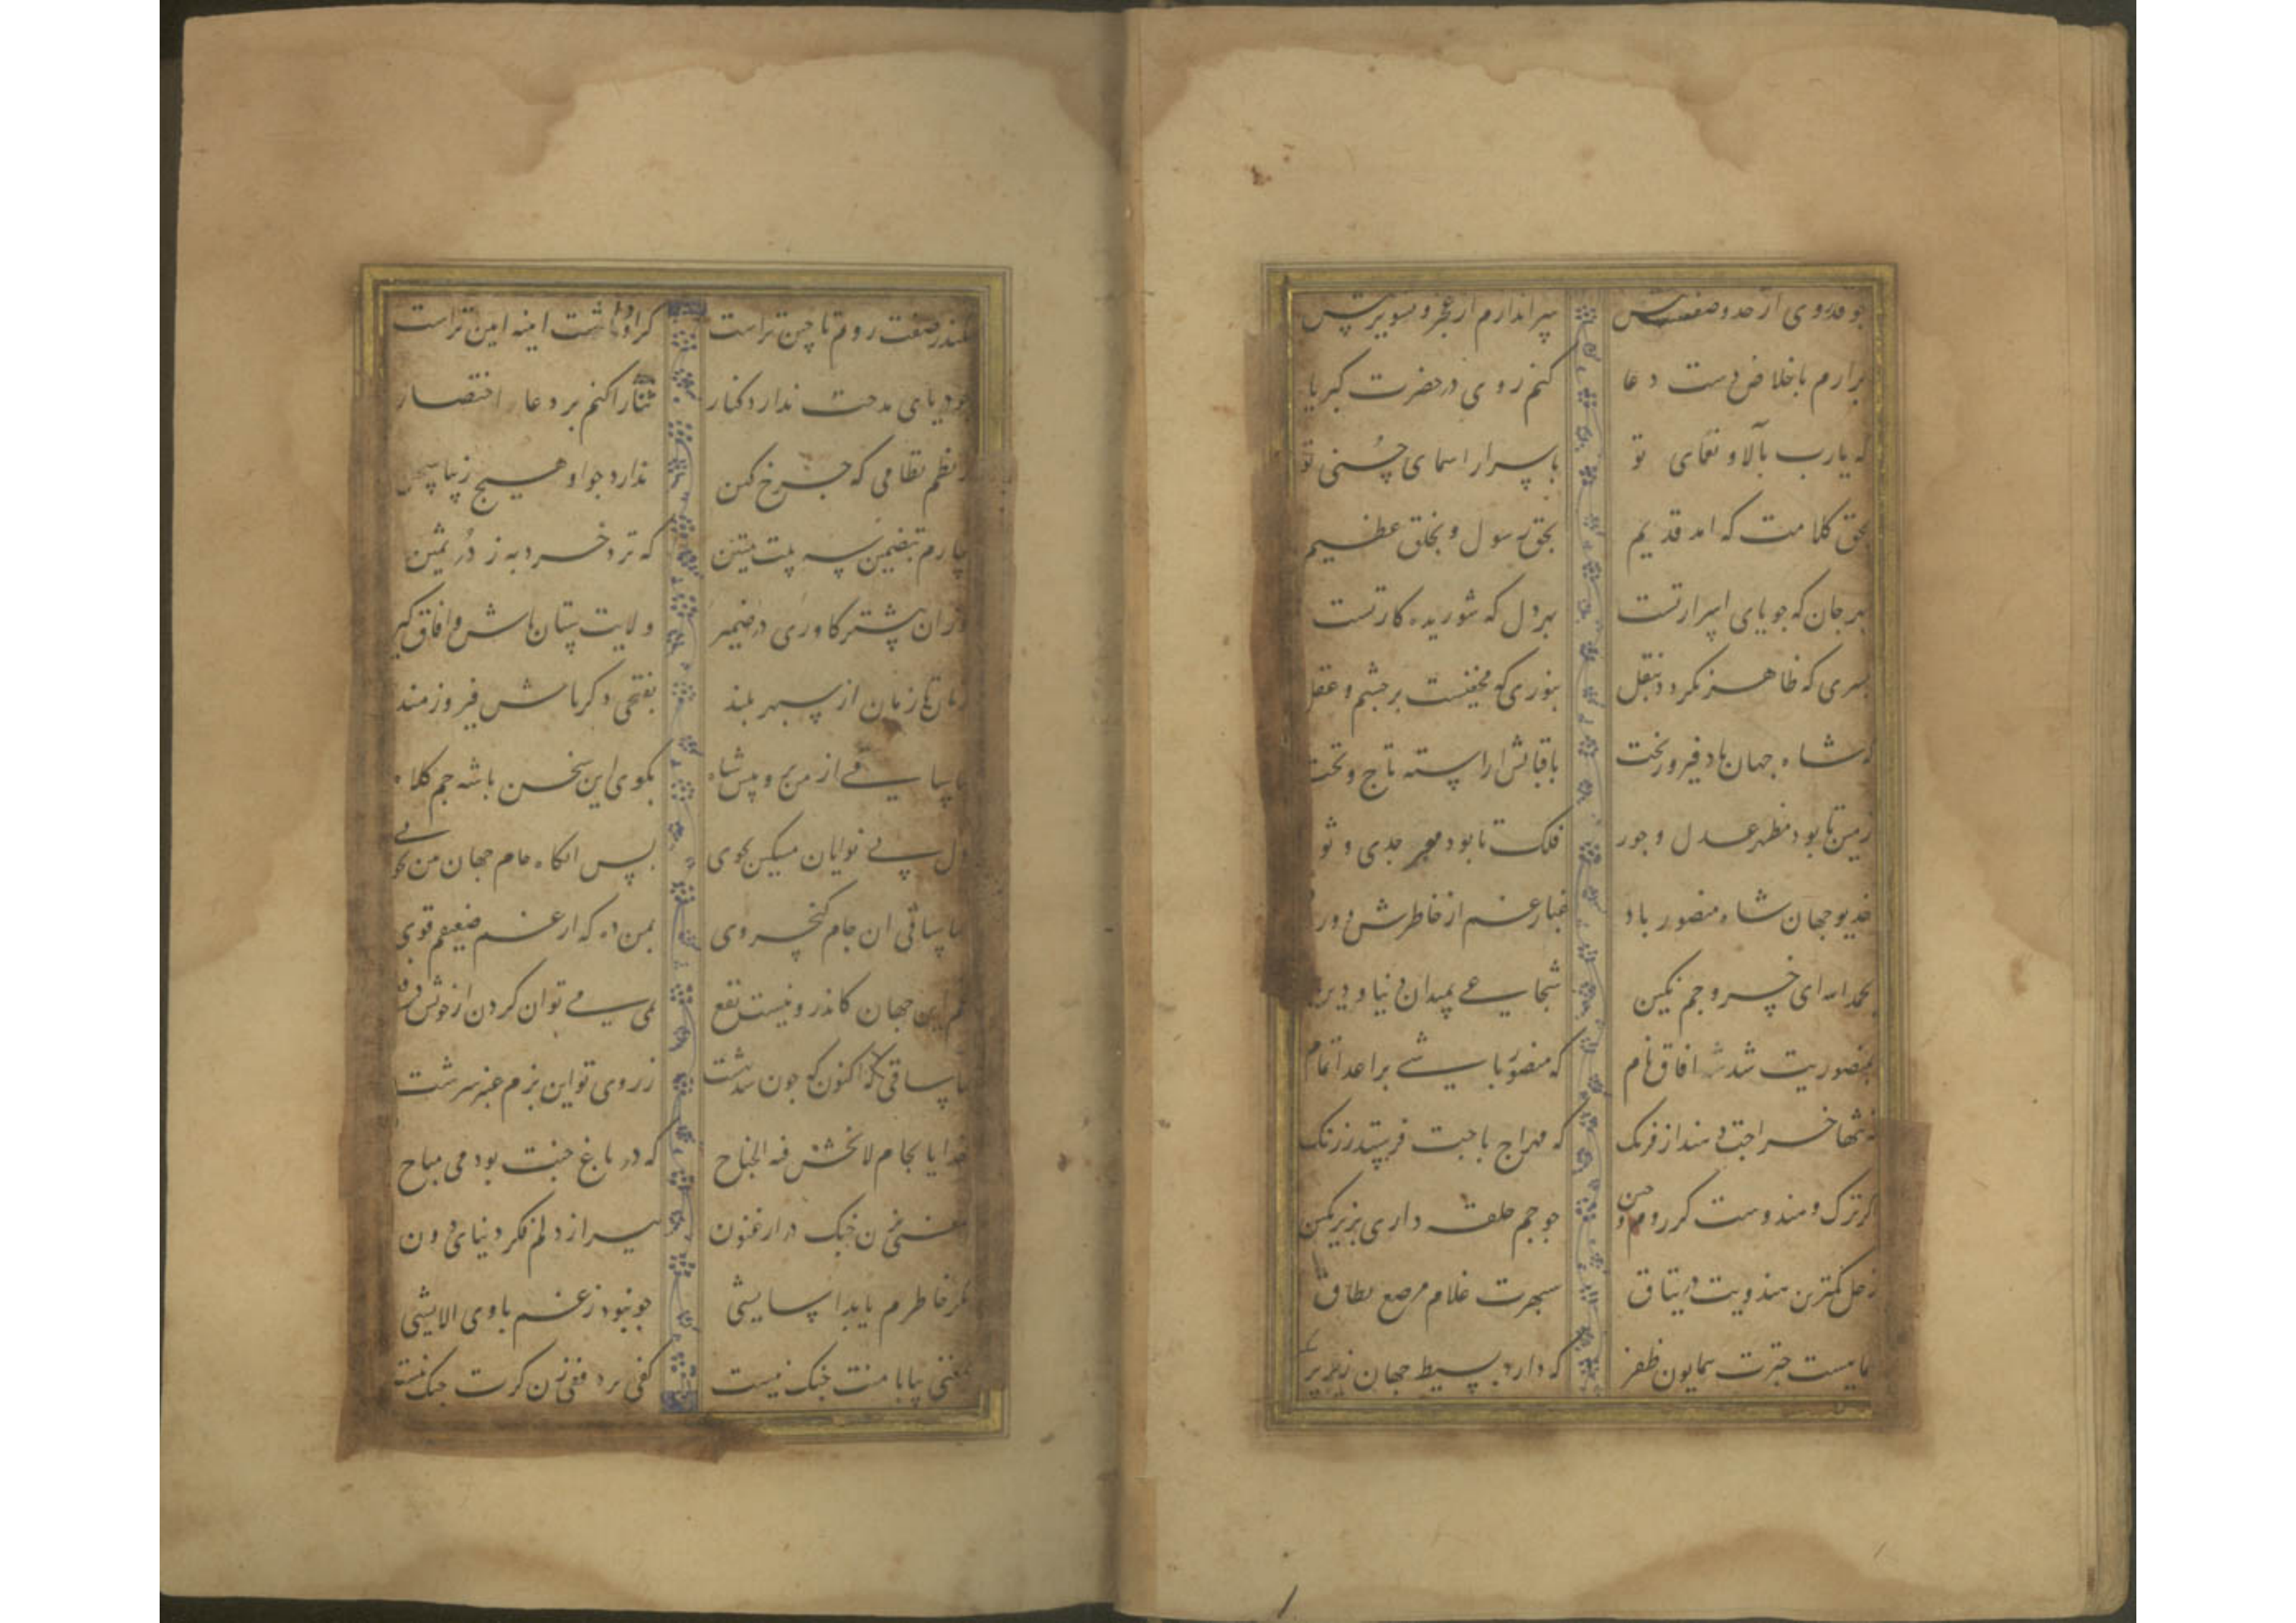 برارم باخلاص دست دعا کنم روی در حضرت کبریا
که یارب بآلاو نعمای تو باسرار اسمای حسنی تو
بحق کلامت که امد قدیم بحق رسول و بخلق عظیم
بهر جان که جویای اسرار تست بهر دل که شوریده کار تست
بسری که ظاهر نکردد بنقل بنوری که مخفیست بر چشم و عقل
که شاه جهان باد فیروز بخت باقبالش اراسته تاج و تخت
زمین تا بود مظهر عدل و جور فلک تا بود جدی و ثور
خدیو جهان شاه منصور باد غبار غم از خاطرش دور
بحمدالله ای خسرو جم نکین شجاعی بمیدان دنیا و دین
بمنصوریت شد در افاق نام که منصور باشی بر اعدا تمام
خراجت دهند از فرنک که مهراج باجت فرستد ز زنک
کر ترک و هندوست کر روم و چین جو جم جمله داری بزیر نکین
زحل کمترین هندویت در یتاق سپهرت غلام مرصع نطاق
همایست چترت همایون ظفر که دارد بسیط جهان زیر پر
سکندر صفت روم تا چین تراست کر او داشت اینه ایین تراست
جو دریای مدحت ندارد کنار ثنا را کنم بر دعا اختصار
ز نظم نظامی که چرخ کهن ندارد جو او هیچ زیبا سخن
بیارم بتضمین سه بیت متین که نزد خرد به ز در ثمین
از ان پیشتر کاوری در ضمیر ولایت ستان باش و افاق کیر
زمان تا زمان از سپهر بلند بفتحی دکر باش فیروزمند
بیا ساقی از من برو پیش شاه بکوی این سخن با شه جم کلاه
دل بی نوایان مسکین بجوی پس انکاه جام جهان بین بجوی
بیا ساقی ان جام کیخسروی بمن ده که از غم ضعیفم قوی
غم این جهان کاندرو نیست نفع بمی می توان کردن از خویش دفع
بیا ساقی اکنون که جون شد بهشت ز روی تو این بزم عنبر سرشت
خذ الجام لاتخش فیه الجناح که در باغ جنت بود می مباح
مغنی بزن جنک در ارغنون ببر از دلم فکر دنیای دون
مکر خاطرم یابد اسایشی جو نبود ز غم با وی الایشی
مغنی بیا با منت جنک نیست کفی بر دفی زن کرت جنک نیست